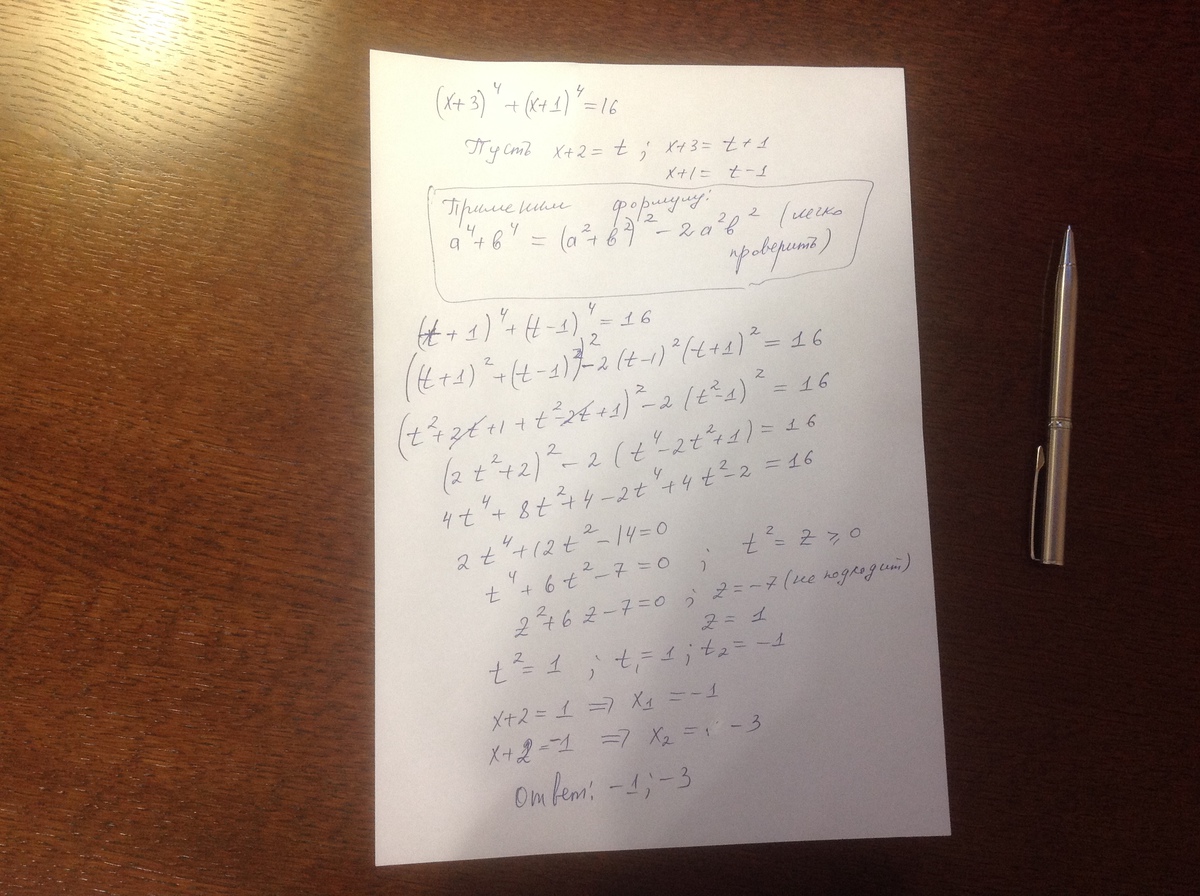 (x+3)⁴+(x+1)⁴=16
Пусть x+2=t; x+3=t+1
x+1=t-1
Применим формулу:
a⁴+в⁴=(a²+в²)²-2a²в² (легко
проверить)
(t+1)⁴+(t-1)⁴=16
((t+1)²+(t-1)²)²-2(t-1)²(t+1)²=16
(t²+2t+1+t²-2t+1)²-2(t²-1)²=16
(2t²+2)²-2(t⁴-2t²+1)=16
4t⁴+8t²+4-2t⁴+4t²-2=16
2t⁴+12t²-14=0
t⁴+6t²-7=0; t²=z⩾0
z²+6z-7=0; z=-7(не подходит)
z=1
t²=1; t₁=1; t₂=-1
x+2=1 ⇒ x₁=-1
x+2=-1 ⇒ x₂=-3
Ответ: -1; -3